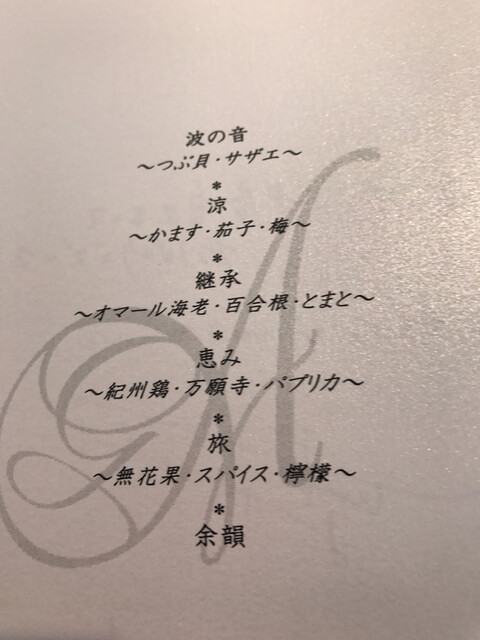 波の音
～つぶ貝・サザエ～
*
涼
～かます・茄子・梅～
*
継承
～オマール海老・百合根・とまと～
*
恵み
～紀州鶏・万願寺・パプリカ～
*
旅
～無花果・スパイス・檸檬～
*
余韻